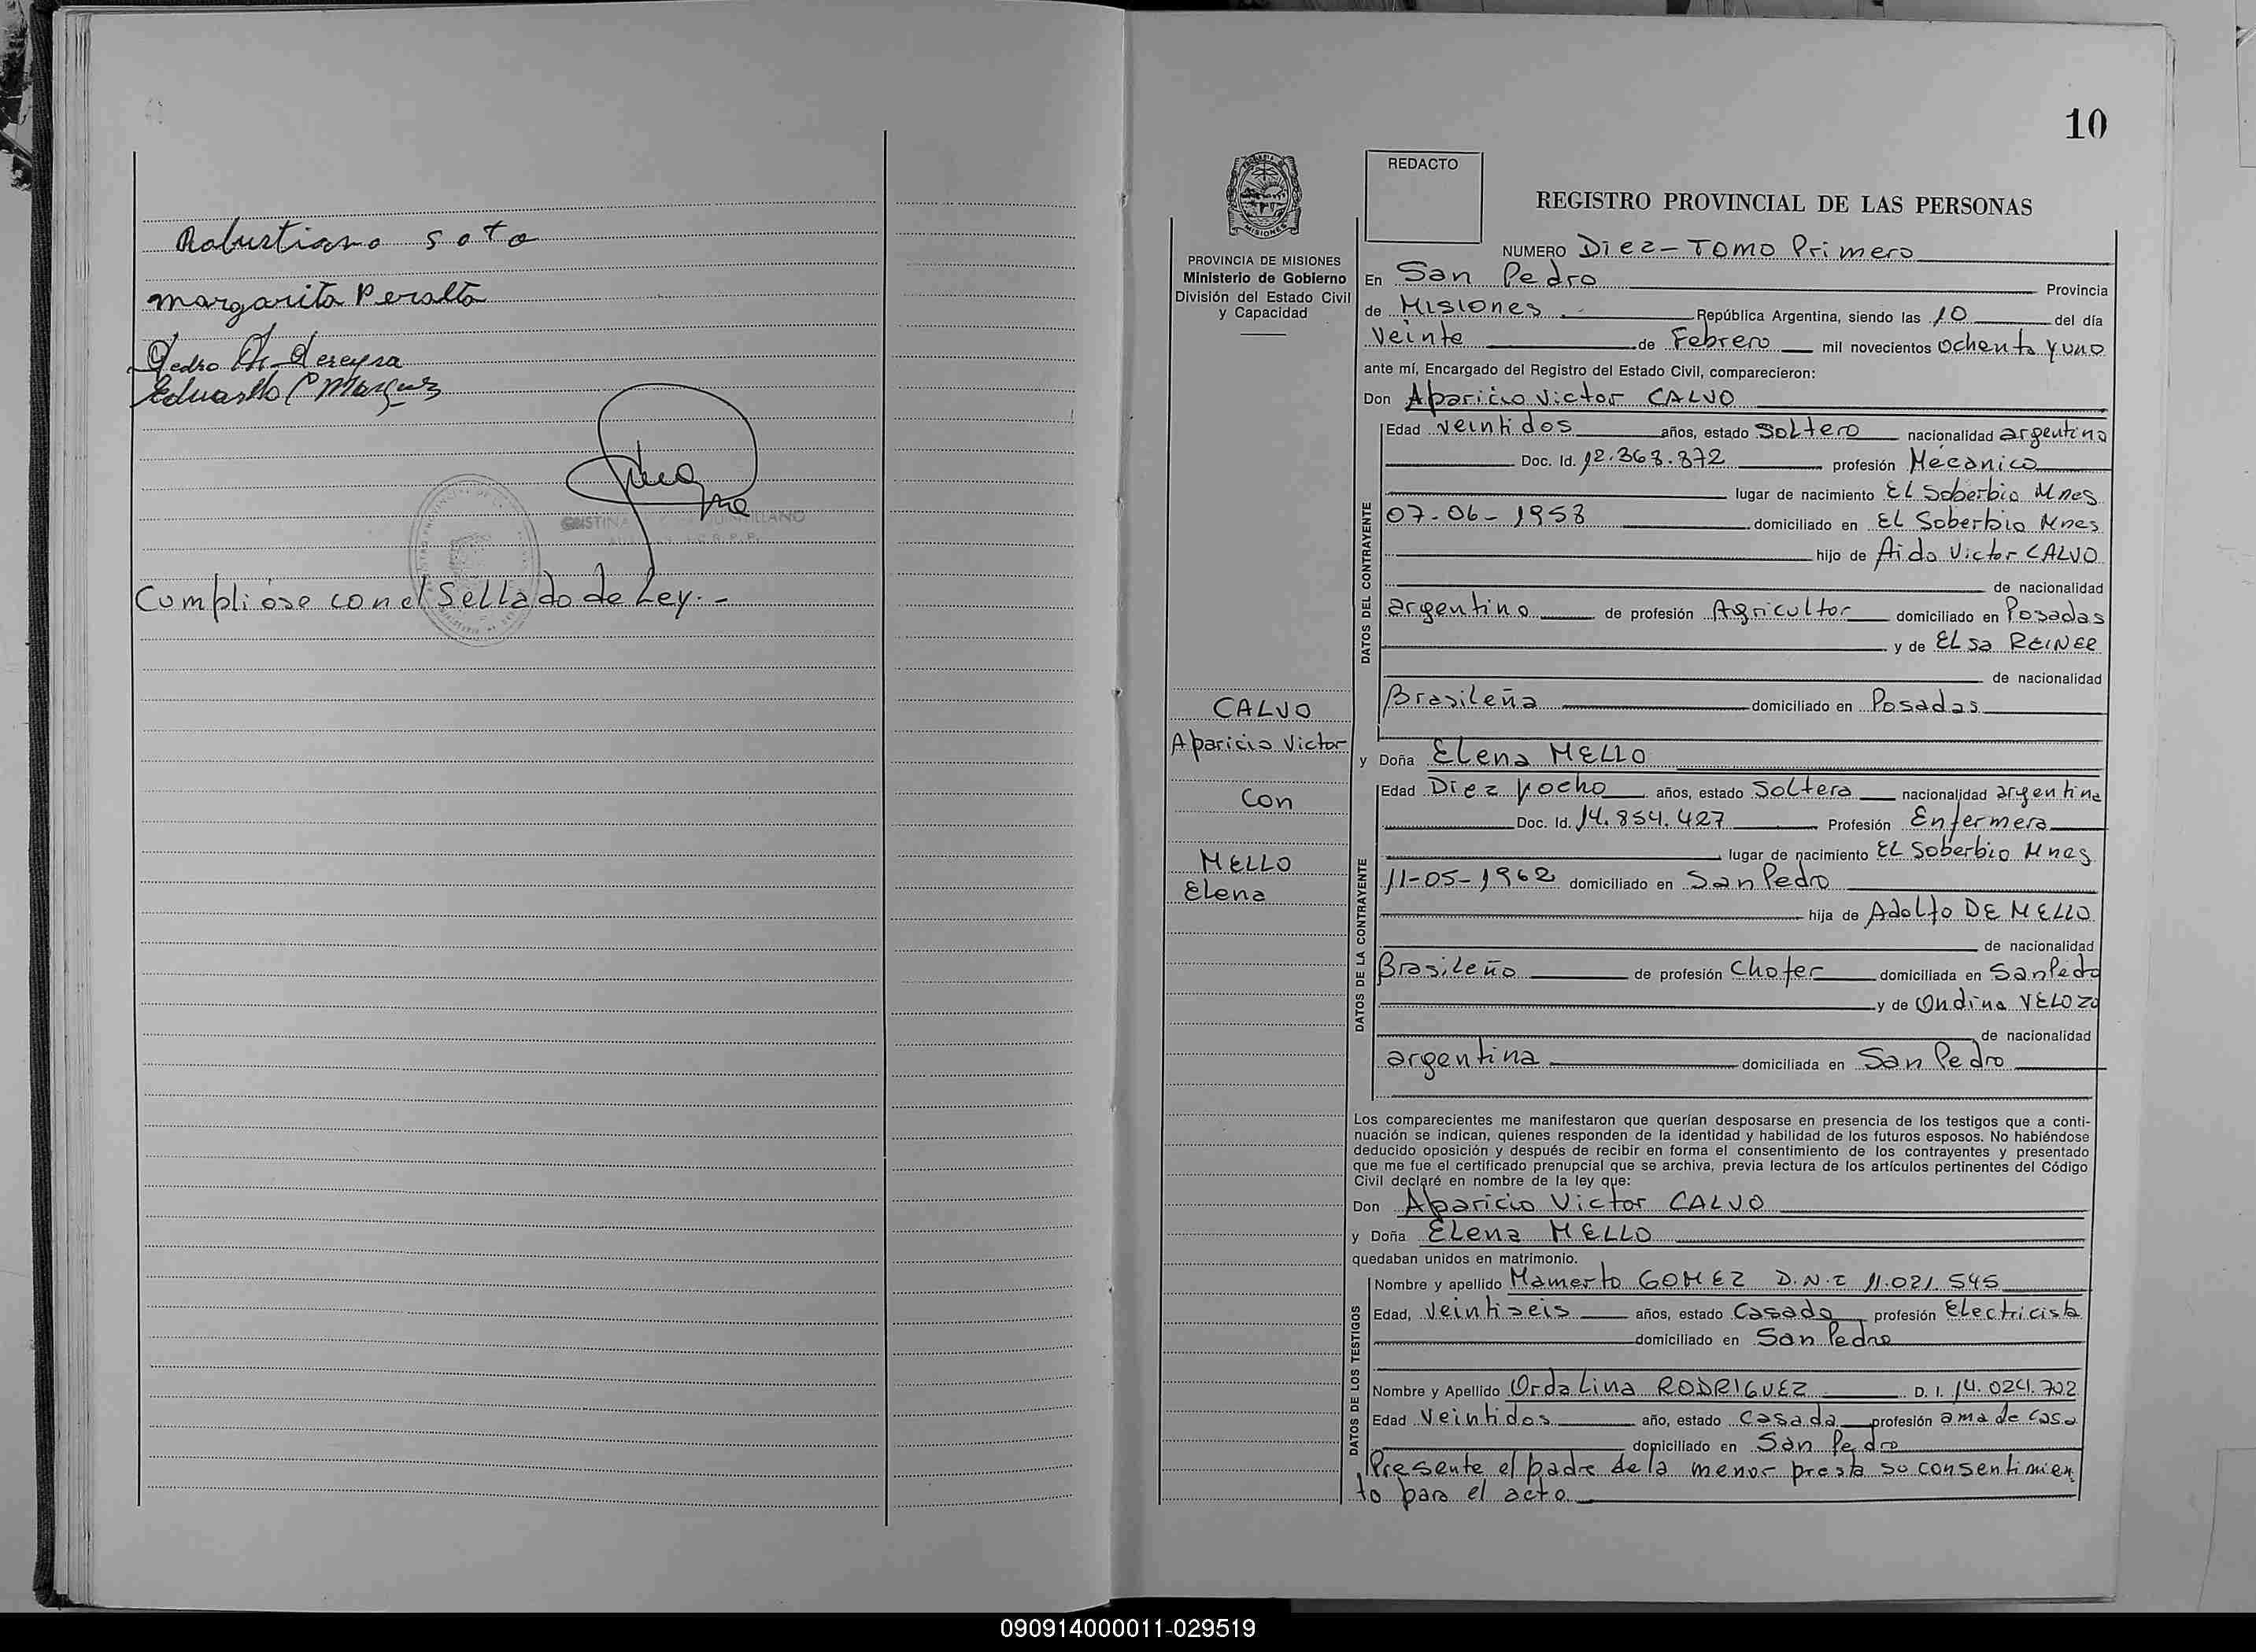 Robustiano Soto
Margarita Peralta
Pedro
Eduardo
Cumplióse con el Sellado de Ley. -
10
REDACTO
REGISTRO PROVINCIAL DE LAS PERSONAS
PROVINCIA DE MISIONES
Ministerio de Gobierno
División del Estado Civil
y Capacidad
CALVO
Aparicio Victor
Con
MELLO
Elena
NUMERO Diez - TOMO Primero
En San Pedro Provincia
de Misiones República Argentina, siendo las 10 del día
Veinte de Febrero mil novecientos ochenta y uno
ante mí, Encargado del Registro del Estado Civil, comparecieron:
Don Aparicio Victor CALVO
DATOS DEL CONTRAYENTE
Edad veintidos años, estado Soltero nacionalidad argentino
Doc. Id. 12.363.872 profesión Mecanico
lugar de nacimiento El Soberbio Mnes
07-06-1958 domiciliado en El Soberbio Mnes
hijo de Aido Victor CALVO
de nacionalidad
argentino de profesión Agricultor domiciliado en Posadas
y de Elsa REINER
de nacionalidad
Brasileña domiciliado en Posadas
y Doña Elena MELLO
DATOS DE LA CONTRAYENTE
Edad Diez y ocho años, estado Soltera nacionalidad argentina
Doc. Id. 14.854.427 Profesión Enfermera
lugar de nacimiento El Soberbio Mnes
11-05-1962 domiciliado en San Pedro
hija de Adolfo DE MELLO
de nacionalidad
Brasileño de profesión Chofer domiciliada en San Pedro
y de Ondina VELOZO
de nacionalidad
argentina domiciliada en San Pedro
Los comparecientes me manifestaron que querían desposarse en presencia de los testigos que a conti-
nuación se indican, quienes responden de la identidad y habilidad de los futuros esposos. No habiéndose
deducido oposición y después de recibir en forma el consentimiento de los contrayentes y presentado
que me fue el certificado prenupcial que se archiva, previa lectura de los artículos pertinentes del Código
Civil declaré en nombre de la ley que:
Don Aparicio Victor CALVO
y Doña Elena MELLO
quedaban unidos en matrimonio.
DATOS DE LOS TESTIGOS
Nombre y apellido Mamerto GOMEZ D.N.I 11.021.545
Edad, veintiseis años, estado Casado profesión Electricista
domiciliado en San Pedro
Nombre y Apellido Ordalina RODRIGUEZ D. I. 14.024.702
Edad Veintidos año, estado Casada profesión ama de casa
domiciliado en San Pedro
Presente el padre de la menor presta su consentimien
to para el acto
090914000011-029519